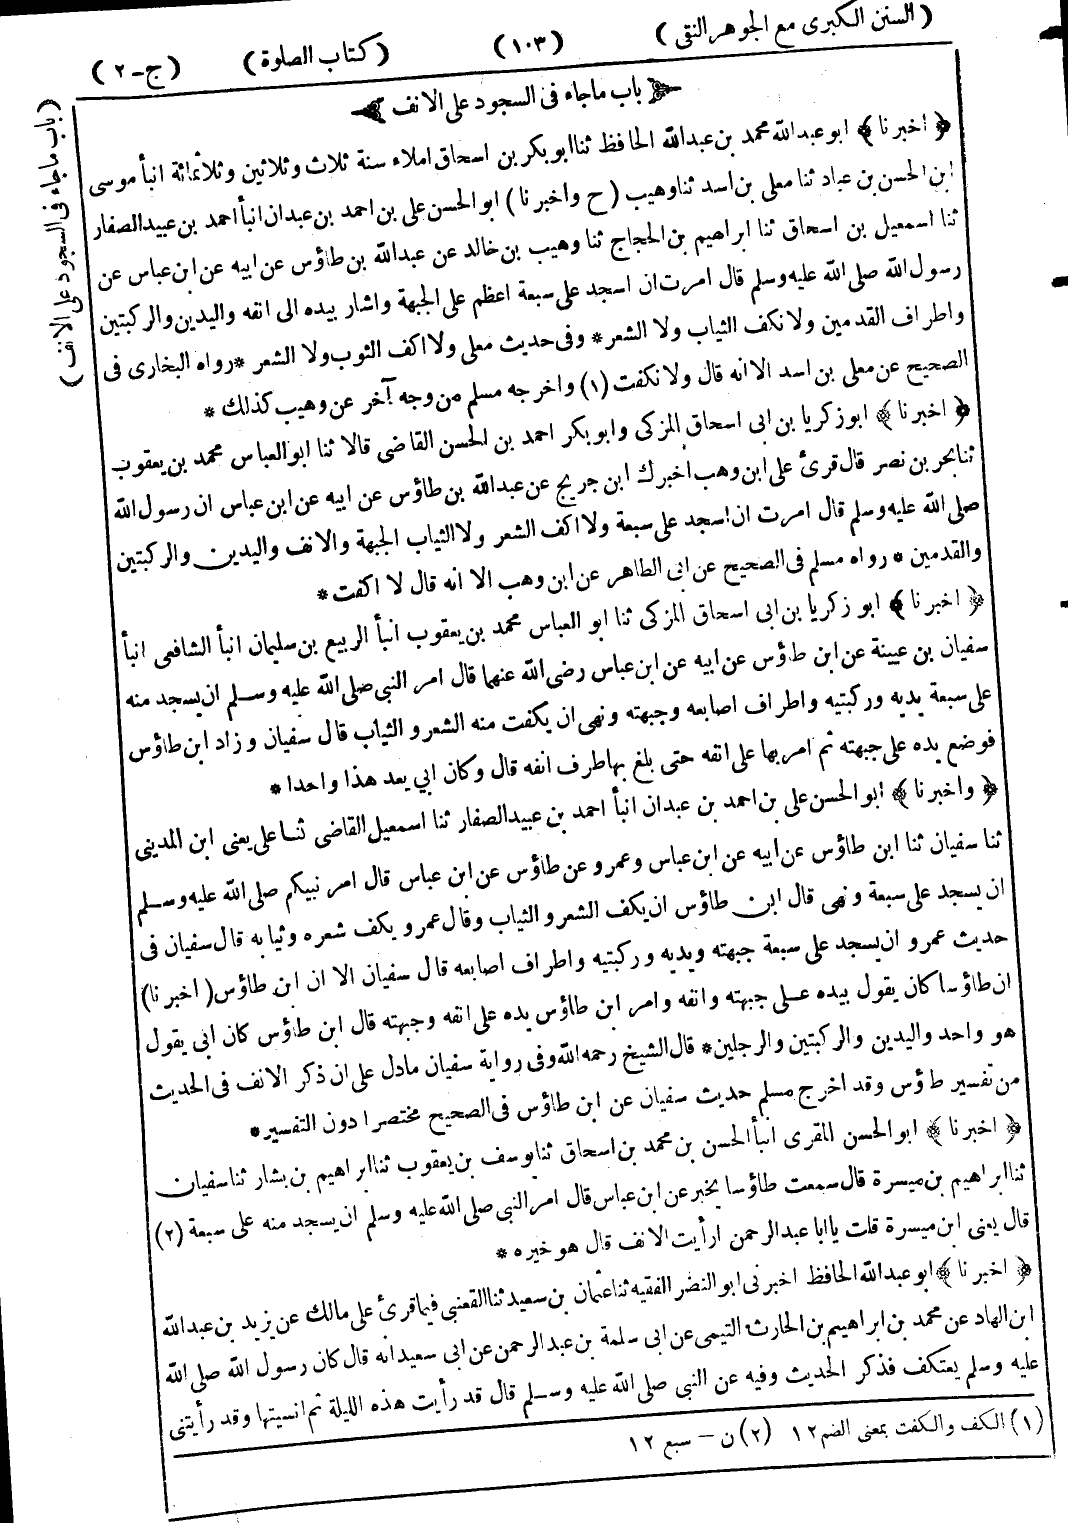 (السنن الكبرى مع الجوهر النقى) (١٠٣) (كتاب الصلوة) (ج-٢)
(باب ماجاء فى السجود على الانف)
باب ماجاء فى السجود على الانف
﴿ اخبرنا ﴾ ابو عبد الله محمد بن عبد الله الحافظ ثنا ابو بكر بن اسحاق املاء سنة ثلاث وثلاثين وثلاثمائة انبأ موسى
ابن الحسن بن عباد ثنا معلى بن اسد ثنا وهيب (ح واخبرنا) ابو الحسن على بن احمد بن عبدان انبأ احمد بن عبيد الصفار
ثنا اسمعيل بن اسحاق ثنا ابراهيم بن الحجاج ثنا وهيب بن خالد عن عبد الله بن طاؤس عن ابيه عن ابن عباس عن
رسول الله صلى الله عليه وسلم قال امرت ان اسجد على سبعة اعظم على الجبهة واشار بيده الى انفه واليدين والركبتين
واطراف القدمين ولا نكف الثياب ولا الشعر * وفى حديث معلى ولا اكف الثوب ولا الشعر * رواه البخارى فى
الصحيح عن معلى بن اسد الا انه قال ولا نكفت (١) واخرجه مسلم من وجه آخر عن وهيب كذلك *
﴿ اخبرنا ﴾ ابو زكريا بن ابى اسحاق المزكى وابو بكر احمد بن الحسن القاضى قالا ثنا ابو العباس محمد بن يعقوب
ثنا بحر بن نصر قال قرئ على ابن وهب اخبرك ابن جريج عن عبد الله بن طاؤس عن ابيه عن ابن عباس ان رسول الله
صلى الله عليه وسلم قال امرت ان اسجد على سبعة ولا اكف الشعر ولا الثياب الجبهة والانف واليدين والركبتين
والقدمين * رواه مسلم فى الصحيح عن ابى الطاهر عن ابن وهب الا انه قال لا اكفت *
﴿ اخبرنا ﴾ ابو زكريا بن ابى اسحاق المزكى ثنا ابو العباس محمد بن يعقوب انبأ الربيع بن سليمان انبأ الشافعى انبأ
سفيان بن عيينة عن ابن طاؤس عن ابيه عن ابن عباس رضى الله عنهما قال امر النبى صلى الله عليه وسلم ان يسجد منه
على سبعة يديه وركبتيه واطراف اصابعه وجبهته ونهى ان يكفت منه الشعر و الثياب قال سفيان وزاد ابن طاؤس
فوضع يده على جبهته ثم امر بها على انفه حتى بلغ بها طرف انفه قال وكان ابي يعد هذا واحدا *
﴿ واخبرنا ﴾ ابو الحسن على بن احمد بن عبدان انبأ احمد بن عبيد الصفار ثنا اسمعيل القاضى ثنا على يعنى ابن المدينى
ثنا سفيان ثنا ابن طاؤس عن ابيه عن ابن عباس وعمرو عن طاؤس عن ابن عباس قال امر نبيكم صلى الله عليه وسلم
ان يسجد على سبعة ونهى قال ابن طاؤس ان يكف الشعر و الثياب وقال عمرو يكف شعره وثيابه قال سفيان فى
حديث عمرو ان يسجد على سبعة جبهته ويديه وركبتيه واطراف اصابعه قال سفيان الا ان ابن طاؤس (اخبرنا)
ان طاؤسا كان يقول بيده على جبهته وانفه وامر ابن طاؤس يده على انفه وجبهته قال ابن طاؤس كان ابى يقول
هو واحد واليدين والركبتين والرجلين * قال الشيخ رحمه الله وفى رواية سفيان مادل على ان ذكر الانف فى الحديث
من تفسير طاؤس وقد اخرج مسلم حديث سفيان عن ابن طاؤس فى الصحيح مختصرا دون التفسير *
﴿ اخبرنا ﴾ ابو الحسن المقرى انبأ الحسن بن محمد بن اسحاق ثنا يوسف بن يعقوب ثنا ابراهيم بن بشار ثنا سفيان
ثنا ابراهيم بن ميسرة قال سمعت طاؤسا يخبر عن ابن عباس قال امر النبى صلى الله عليه وسلم ان يسجد منه على سبعة (٢)
قال يعنى ابن ميسرة قلت يا ابا عبد الرحمن ارأيت الانف قال هو خيره *
﴿ اخبرنا ﴾ ابو عبد الله الحافظ اخبرنى ابو النضر الفقيه ثنا عثمان بن سعيد ثنا القعنبى فيما قرئ على مالك عن يزيد بن عبد الله
ابن الهاد عن محمد بن ابراهيم بن الحارث التيمى عن ابى سلمة بن عبد الرحمن عن ابى سعيد انه قال كان رسول الله صلى الله
عليه وسلم يعتكف فذكر الحديث وفيه عن النبى صلى الله عليه وسلم قال قد رأيت هذه الليلة ثم انسيتها وقد رأيتنى
(١) الكف والكفت بمعنى الضم ١٢ (٢) ن - سبع ١٢